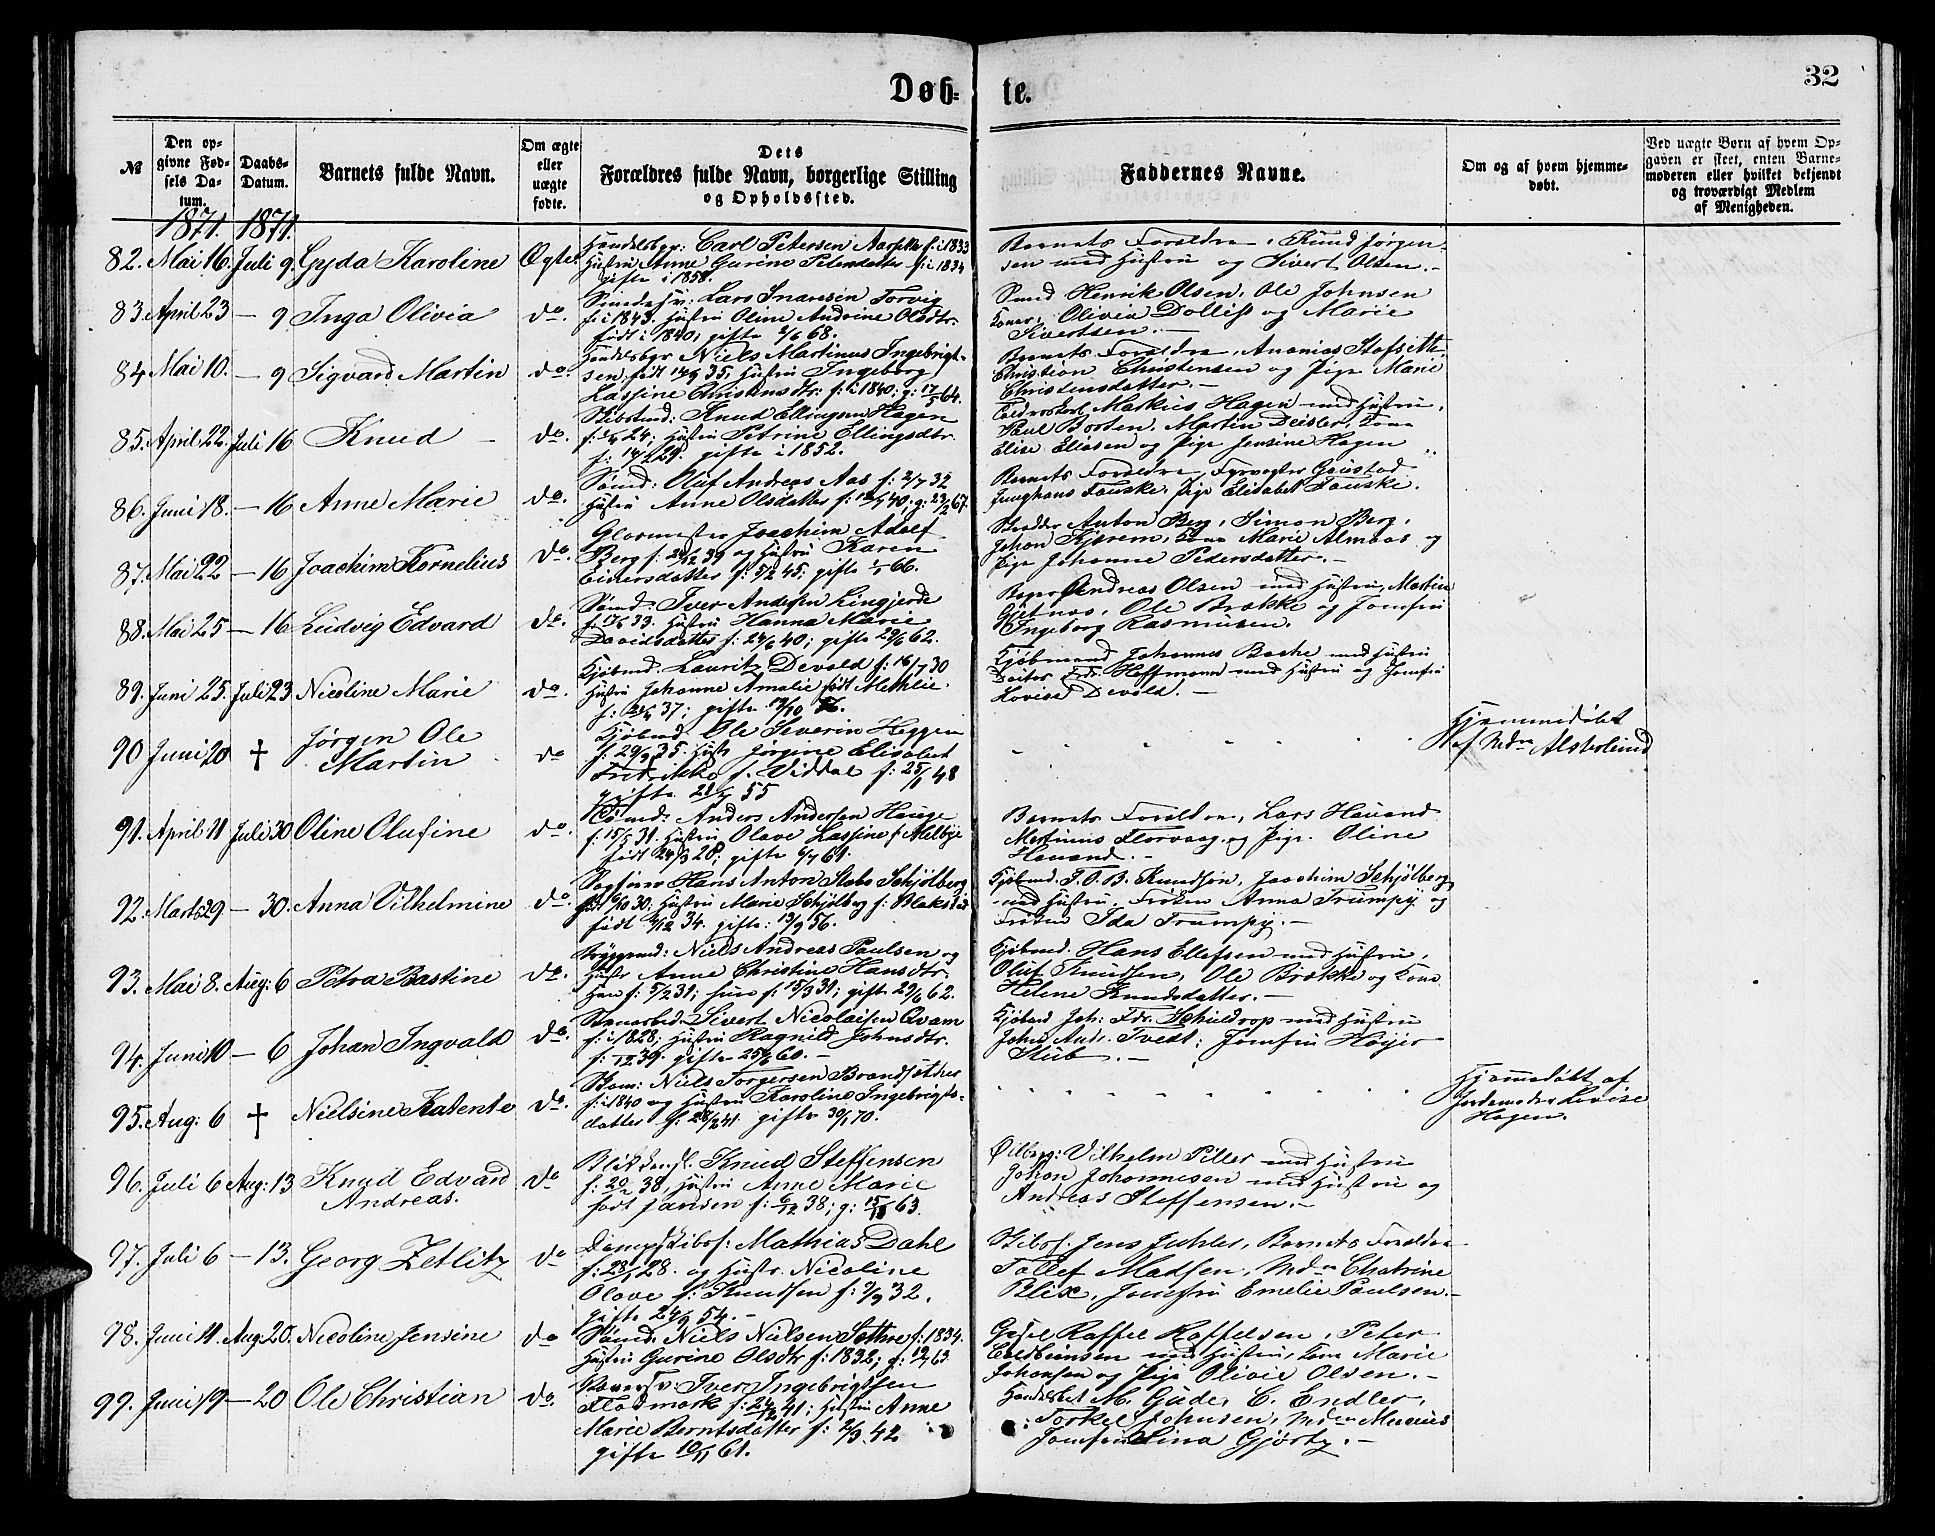 Døb- te.
32
№
Den op-
givne Fød-
sels Da-
tum.
Daabs-
Datum.
Barnets fulde Navn.
Om ægte
eller
uægte
fødte.
Dets
Forældres fulde Navn, borgerlige Stilling
og Opholdssted.
Faddernes Navne.
Om og af hvem hjemme-
døbt.
Ved uægte Børn af hvem Op-
gaven er skeet, enten Barne-
moderen eller hvilket bekjendt
og troværdigt Medlem
af Menigheden.
1871. 1871.
82. Mai 16. Juli 9. Gyda Karoline Ægte.
Handelsbgr: Carl Petersen f: i 1833
Hustru Anne Gurine Petersdatter f: i 1834
gifte i 1858.
Barnets Forældre, Knud Jørgen-
sen med Hustru og Sivert Olsen.-
83. April 23 - 9 Inga Olivia do.
Lars Snaresen Torvig
f: i 1843. Hustru Oline Andrine Olsdtr.
født i 1840, gifte 2/6 68.
Smed Henrik Olsen, Ole Johnsen
Koner, Olivia Dolliss og Marie
Sivertsen.-
84 Mai 10. - 9 Sigvard Martin do.
Handelsbgr Niels Martinus Ingebrigt-
sen født 14/9 35, Hustru Ingeborg
Lassine Christensdtr. f: i 1840; g: 17/5 64.
Barnets Forældre, Ananias
Christian Christensen og Pige Marie
Christensdatter.-
85. April 22. Juli 16 Knud - do.
Knud Ellingsen Hagen
24; Hustru Petrine Ellingsdtr.
29. gifte i 1852.
Mathias Hagen med Hustru,
Paul Borten, Martin Deisler, Kone
Elise Eliasen og Pige Jensine Hagen
86. Juni 18. - 16 Anne Marie do.
Sømd: Oluf Andreas Aas f: 2/7 32
Hustru Anne Olsdatter 40; g: 67.
Barnets Forældre, Fyrvogter
Junghans Fauske, Pige Elisabet Fauske.
87. Mai 22 - 16 Joachim Kornelius do.
Glarmester Joachim Adolf
Berg f: 39 og Hustru Karen
Einersdatter f: 5/2 45; gifte 66.
Anton Berg, Simon Berg,
Johan Kone Marie Almaas og
Pige Johanne Pedersdatter.-
88. Mai 25 - 16 Ludvig Edvard do.
Sømd. Iver Andersen Lingjerde
33. Hustru Hanna Marie
Davidsdatter f: 24/6 40; gifte 29/6 62.
Bager Andreas Olsen med Hustru, Martin
Ole Brække og Jomfru
Ingeborg Rasmusen.
89. Juni 25. Juli 23. Nicoline Marie do.
Kjøbmd. Lauritz Devold f: 16/7 30
Hustru Johanne Amalie født
37; gifte
Kjøbmand Johannes Backe med Hustru
Fdr. Hoffmann med Hustru og Jomfru
Lovise Devold.-
90 Juni 20 † Jørgen Ole
Martin do
Kjøbmd. Ole Severin Heggen
35. Hustr. Jørgine Elisabet
Fredrikke f. Viddal f: 25/1 48
gifte 55
Hjemmedøbt
af Mdm Alsterlund
91. April 11 Juli 30 Oline Olufine do.
Sømd: Anders Andersen Hauge
f: 15/5 31. Hustru Olave Lassine f. Melbye
født 24/3 28; gifte 6/7 61.
Barnets Forældre, Lars Hauand
Martinus Florvaag og Pige Oline
Hauand.-
92. Marts 29 - 30. Anna Vilhelmine do.
Sagfører Hans Anton Stabo Schjølberg
30. Hustru Marie Schjølberg f:
født 34. gifte: 13/9 56.
Kjøbmd. T. O. B. Knudsøn, Joachim Schjølberg
med Hustru, Frøken Anna Trumpy og
Frøken Ida Trumpy.-
93. Mai 8. Aug: 6 Petra Bastine do.
Niels Andreas Paulsen og
Hustr. Anne Christine Hansdtr.
Han f: 5/2 31; hun f. 15/3 31; gifte 29/6 62.
Kjøbmd. Hans Ellefsen med Hustru,
Oluf Knudsen, Ole Brække og Kone
Helene Knudsdatter.-
94. Juni 10 - 6 Johan Ingvald do.
Stenarbeid. Sivert Nicolaisen Qvam
f: i 1828; Hustru Ragnild Johnsdtr.
39. gifte 60.-
Kjøbmd Joh: Fdr. Schieldrop med Hustru
John Andr. Tvedt, Jomfru Høyer
Stub.-
95. Aug: 6 † Nielsine Katente do.
Niels Torgersen
f: i 1840 og Hustru Karoline Ingebrigts-
datter f: 28/2 41. gifte 30/1 70.
Hjemmedøbt af
Jordemoder Lovise
Hagen.
96. Juli 6 Aug: 13 Knud Edvard
Andreas. do
Knud Steffensen
38, Hustru Anne Marie
født Jansen f: 6/12 38; g: 63.
Vilhelm Piller med Hustru
Johan Johannesen med Hustru og
Andreas Steffensen.-
97. Juli 6 - 13. Georg Zetlitz do
Dampskibsf: Mathias Dahl
28. og Hustr. Nicoline
Olave f: Knudsen f: 9/9 32.
gifte 24/9 54.-
Skibsf. Jens Juhler, Barnets Forældre
Tollef Madsen, Mdm Chatrine
Blix, Jomfru Emelie Paulsen.-
98. Juni 11. Aug: 20. Nicoline Jensine do
Sømd. Niels Nielsen f: 1834.
Hustru Gurine Olsdtr f: 1832; g: 63.
Raffel Raffelsen, Peter
med Hustru, Kone Marie
Johansen og Pige Olivie Olsen.-
99. Juni 19 - 20 Ole Christian do.
Iver Ingebrigtsen
Fladmark 41; Hustru Anne
Marie Berntsdatter f: 2/9 42
gifte 10/11 61.
M. Gude, C. Endler,
Torkel Johnsen, Mdm
Jomfru Lina Gjørtz.-